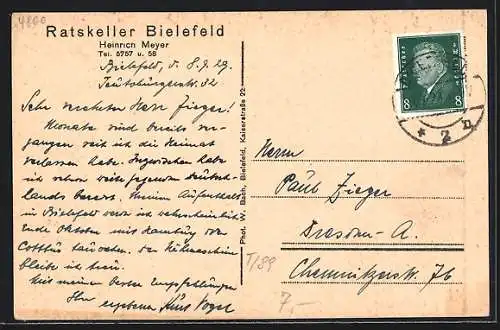 4800
Ratskeller Bielefeld
Heinrich Meyer
Tel. 5757 u. 58
Bielefeld, d. 8.9.29.
Teutoburgerstr. 32
Sehr verehrter Herr Zieger!
Monate sind bereits ver-
gangen seit ich die Heimat
verlassen habe. Inzwischen habe
ich schon weite Gegenden Deutsch-
lands bereist. Meinen Aufenthalt
in Bielefeld werde ich wahrscheinlich
Ende Oktober mit Hamburg oder
Cottbus tauschen. Der
bleibe ich treu.
Mit meinen besten Empfehlungen
Ihr ergebener Kurt Vogel
Phot. W. Bähr, Bielefeld, Kaiserstraße 22
Deutsches Reich
8 8
* 2 n
Herrn
Paul Zieger
Dresden-A.
Chemnitzerstr. 76
T/89
7,-